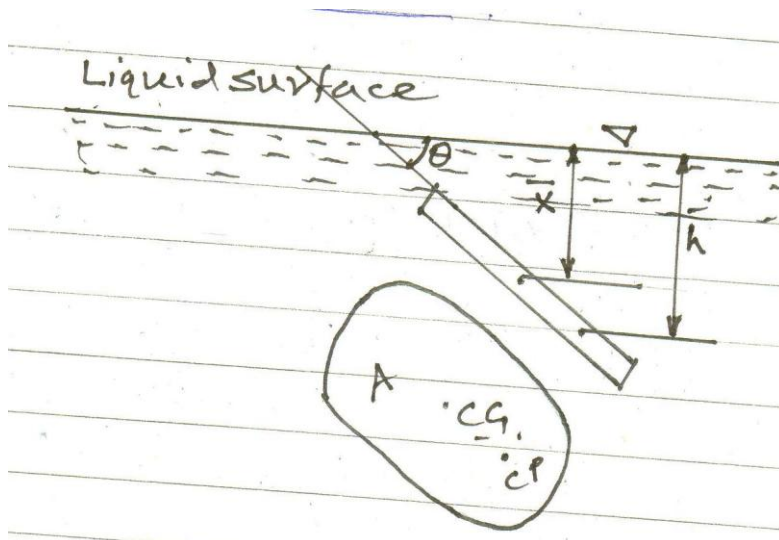 Liquid surface
θ
x̄
h
A
CG
CP